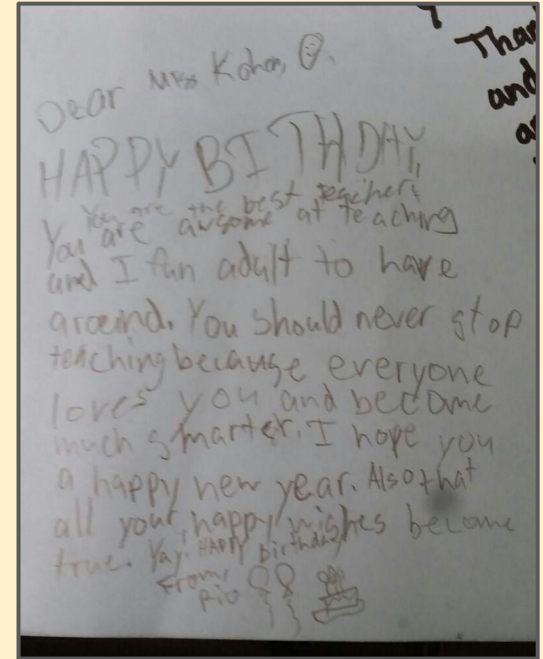 Dear Mrs Kohen,
HAPPY BITHDAY,
You are the best teacher,
You are awsome at teaching
and I fun adult to have
around. You should never stop
teaching because everyone
loves you and become
much smarter. I hope you
a happy new year. Also that
all your happy wishes become
true. Yay. HAPPY birthday
From,
Rio
Than
and